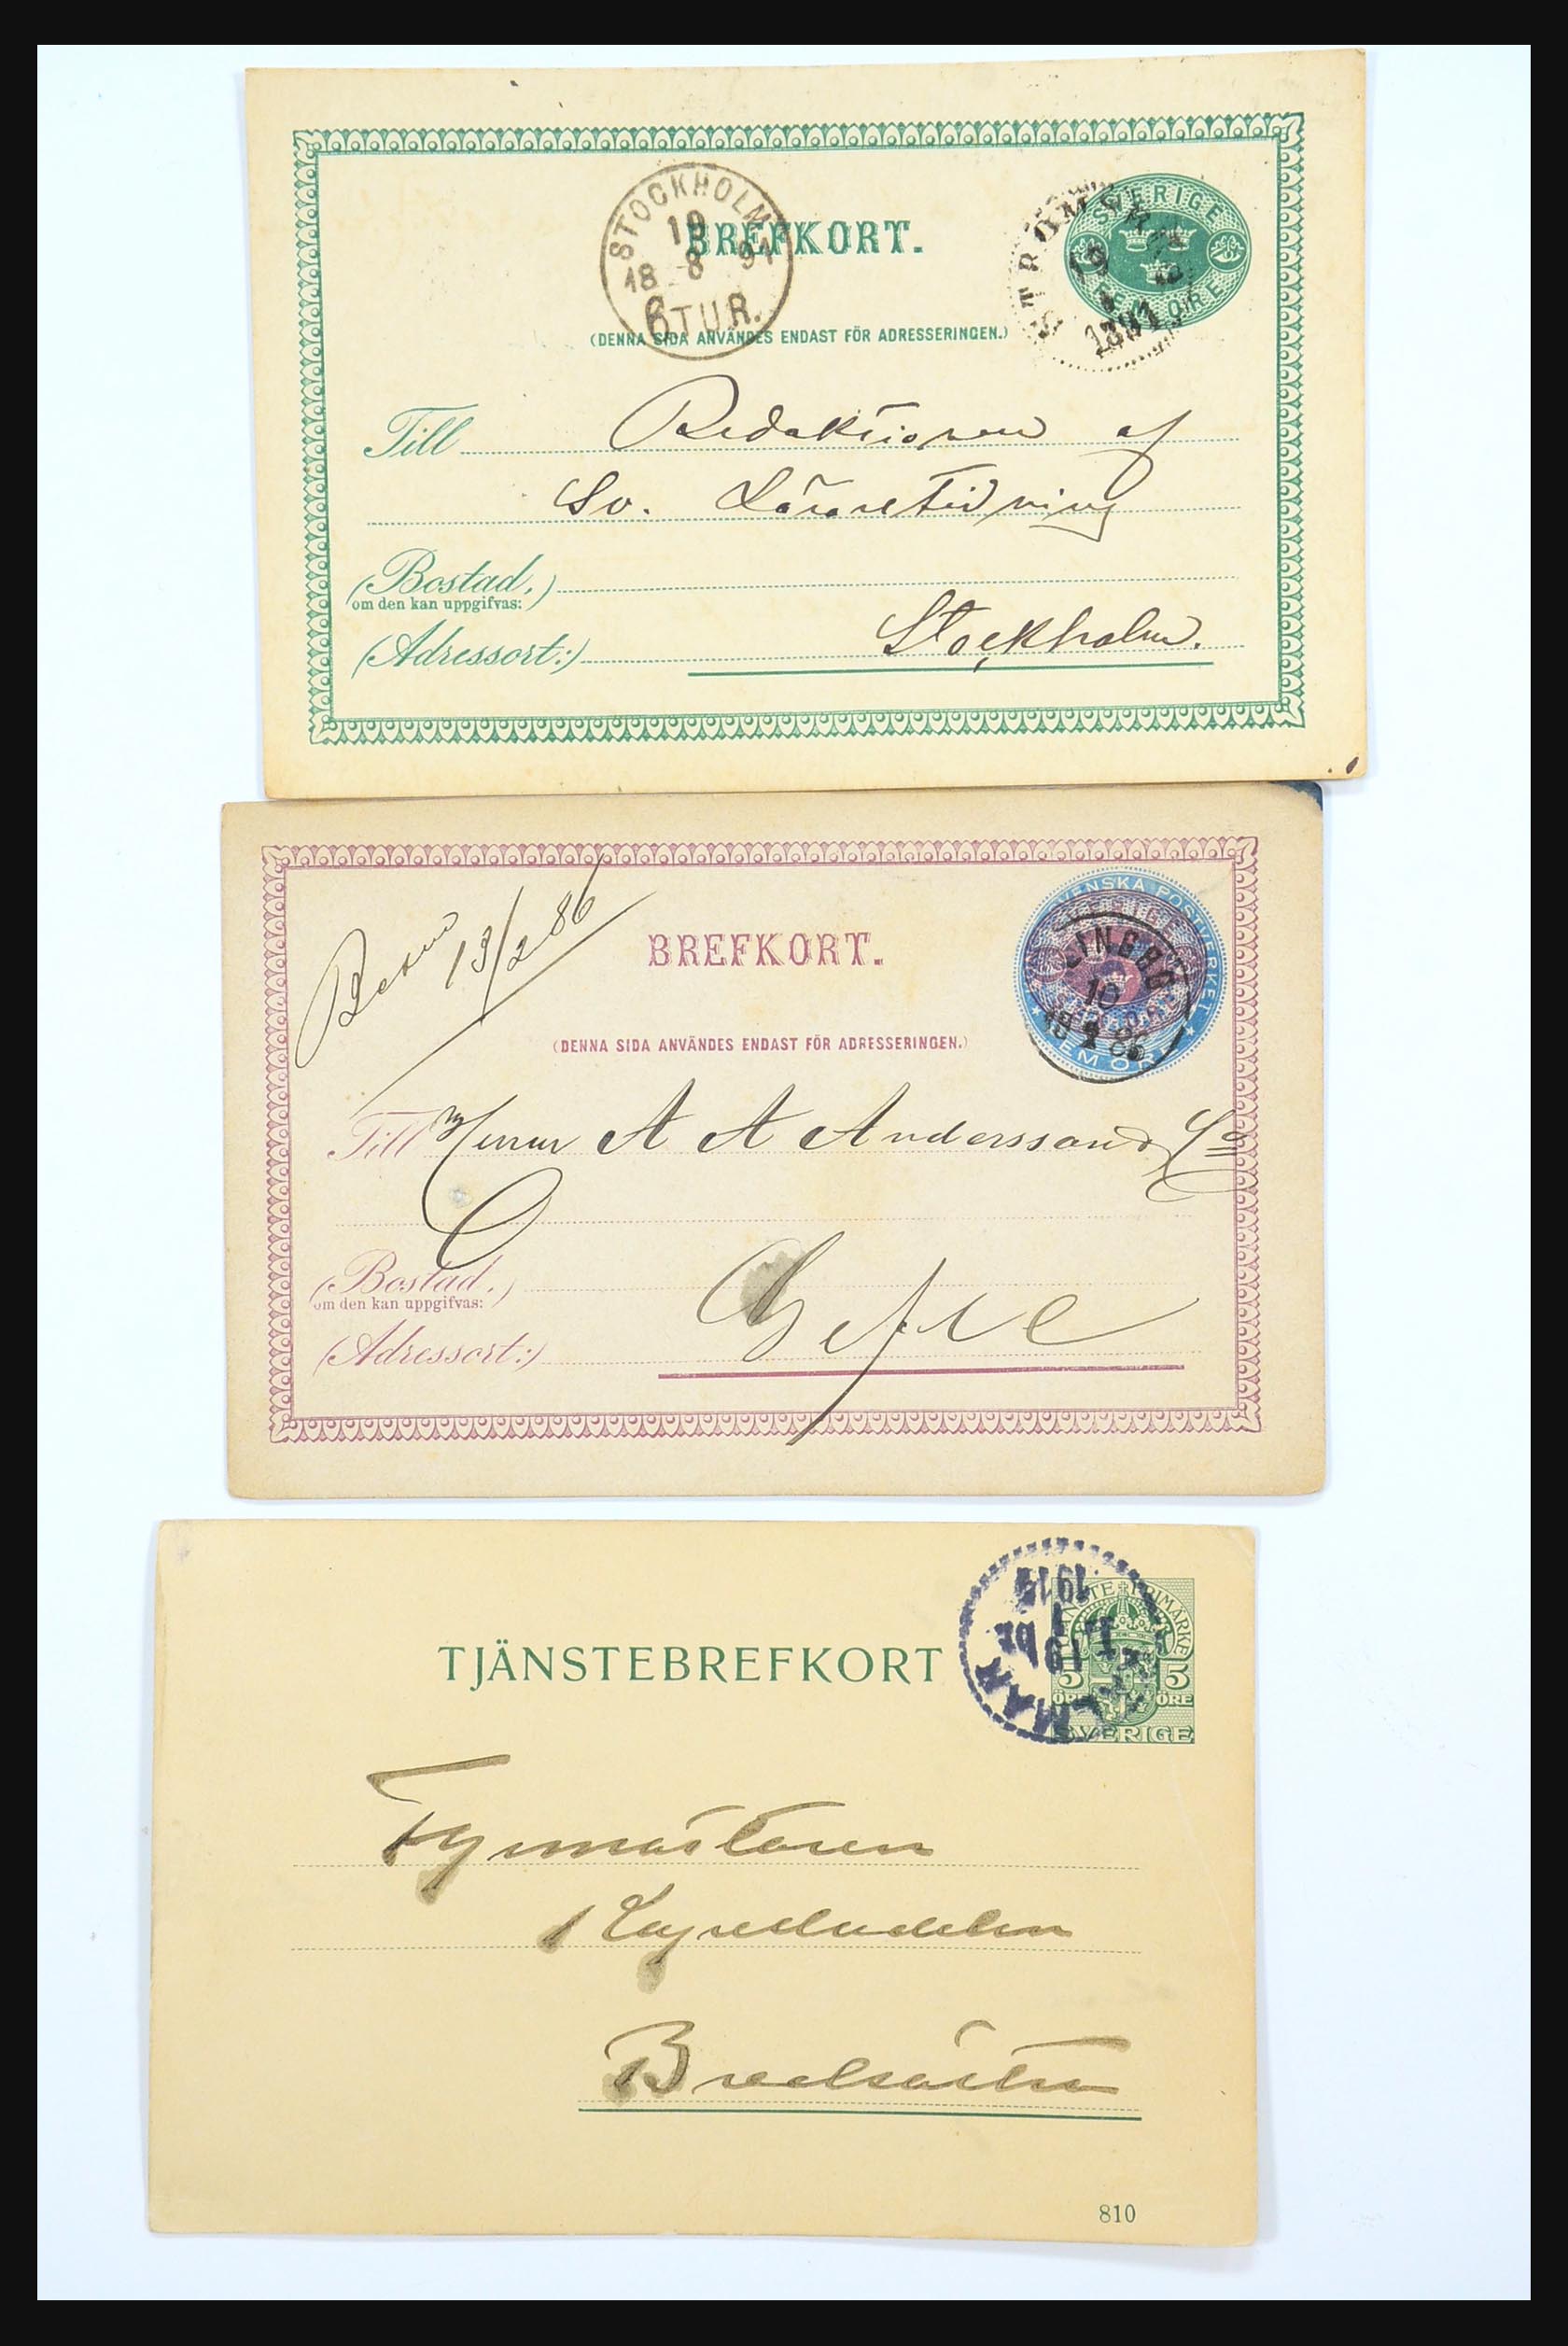 STOCKHOLM
10
18 8 91
6 TUR.
BREFKORT.
SVERIGE
FEM ÖRE
1891
(DENNA SIDA ANVÄNDES ENDAST FÖR ADRESSERINGEN.)
Till Redaktionen af
Sv. Läraretidning
(Bostad,)
om den kan uppgifvas:
(Adressort:) Stockholm.
13/2 86
BREFKORT.
SVENSKA POSTVERKET
FEM ÖRE
LINGBO
10
(DENNA SIDA ANVÄNDES ENDAST FÖR ADRESSERINGEN.)
Till Herrar A A Andersson & Co
(Bostad,)
om den kan uppgifvas:
(Adressort:) Gefle
TJÄNSTEBREFKORT
TJÄNSTE FRIMÄRKE
5 5
ÖRE ÖRE
SVERIGE
KALMAR
Fyrmästaren
Bredsättra
810